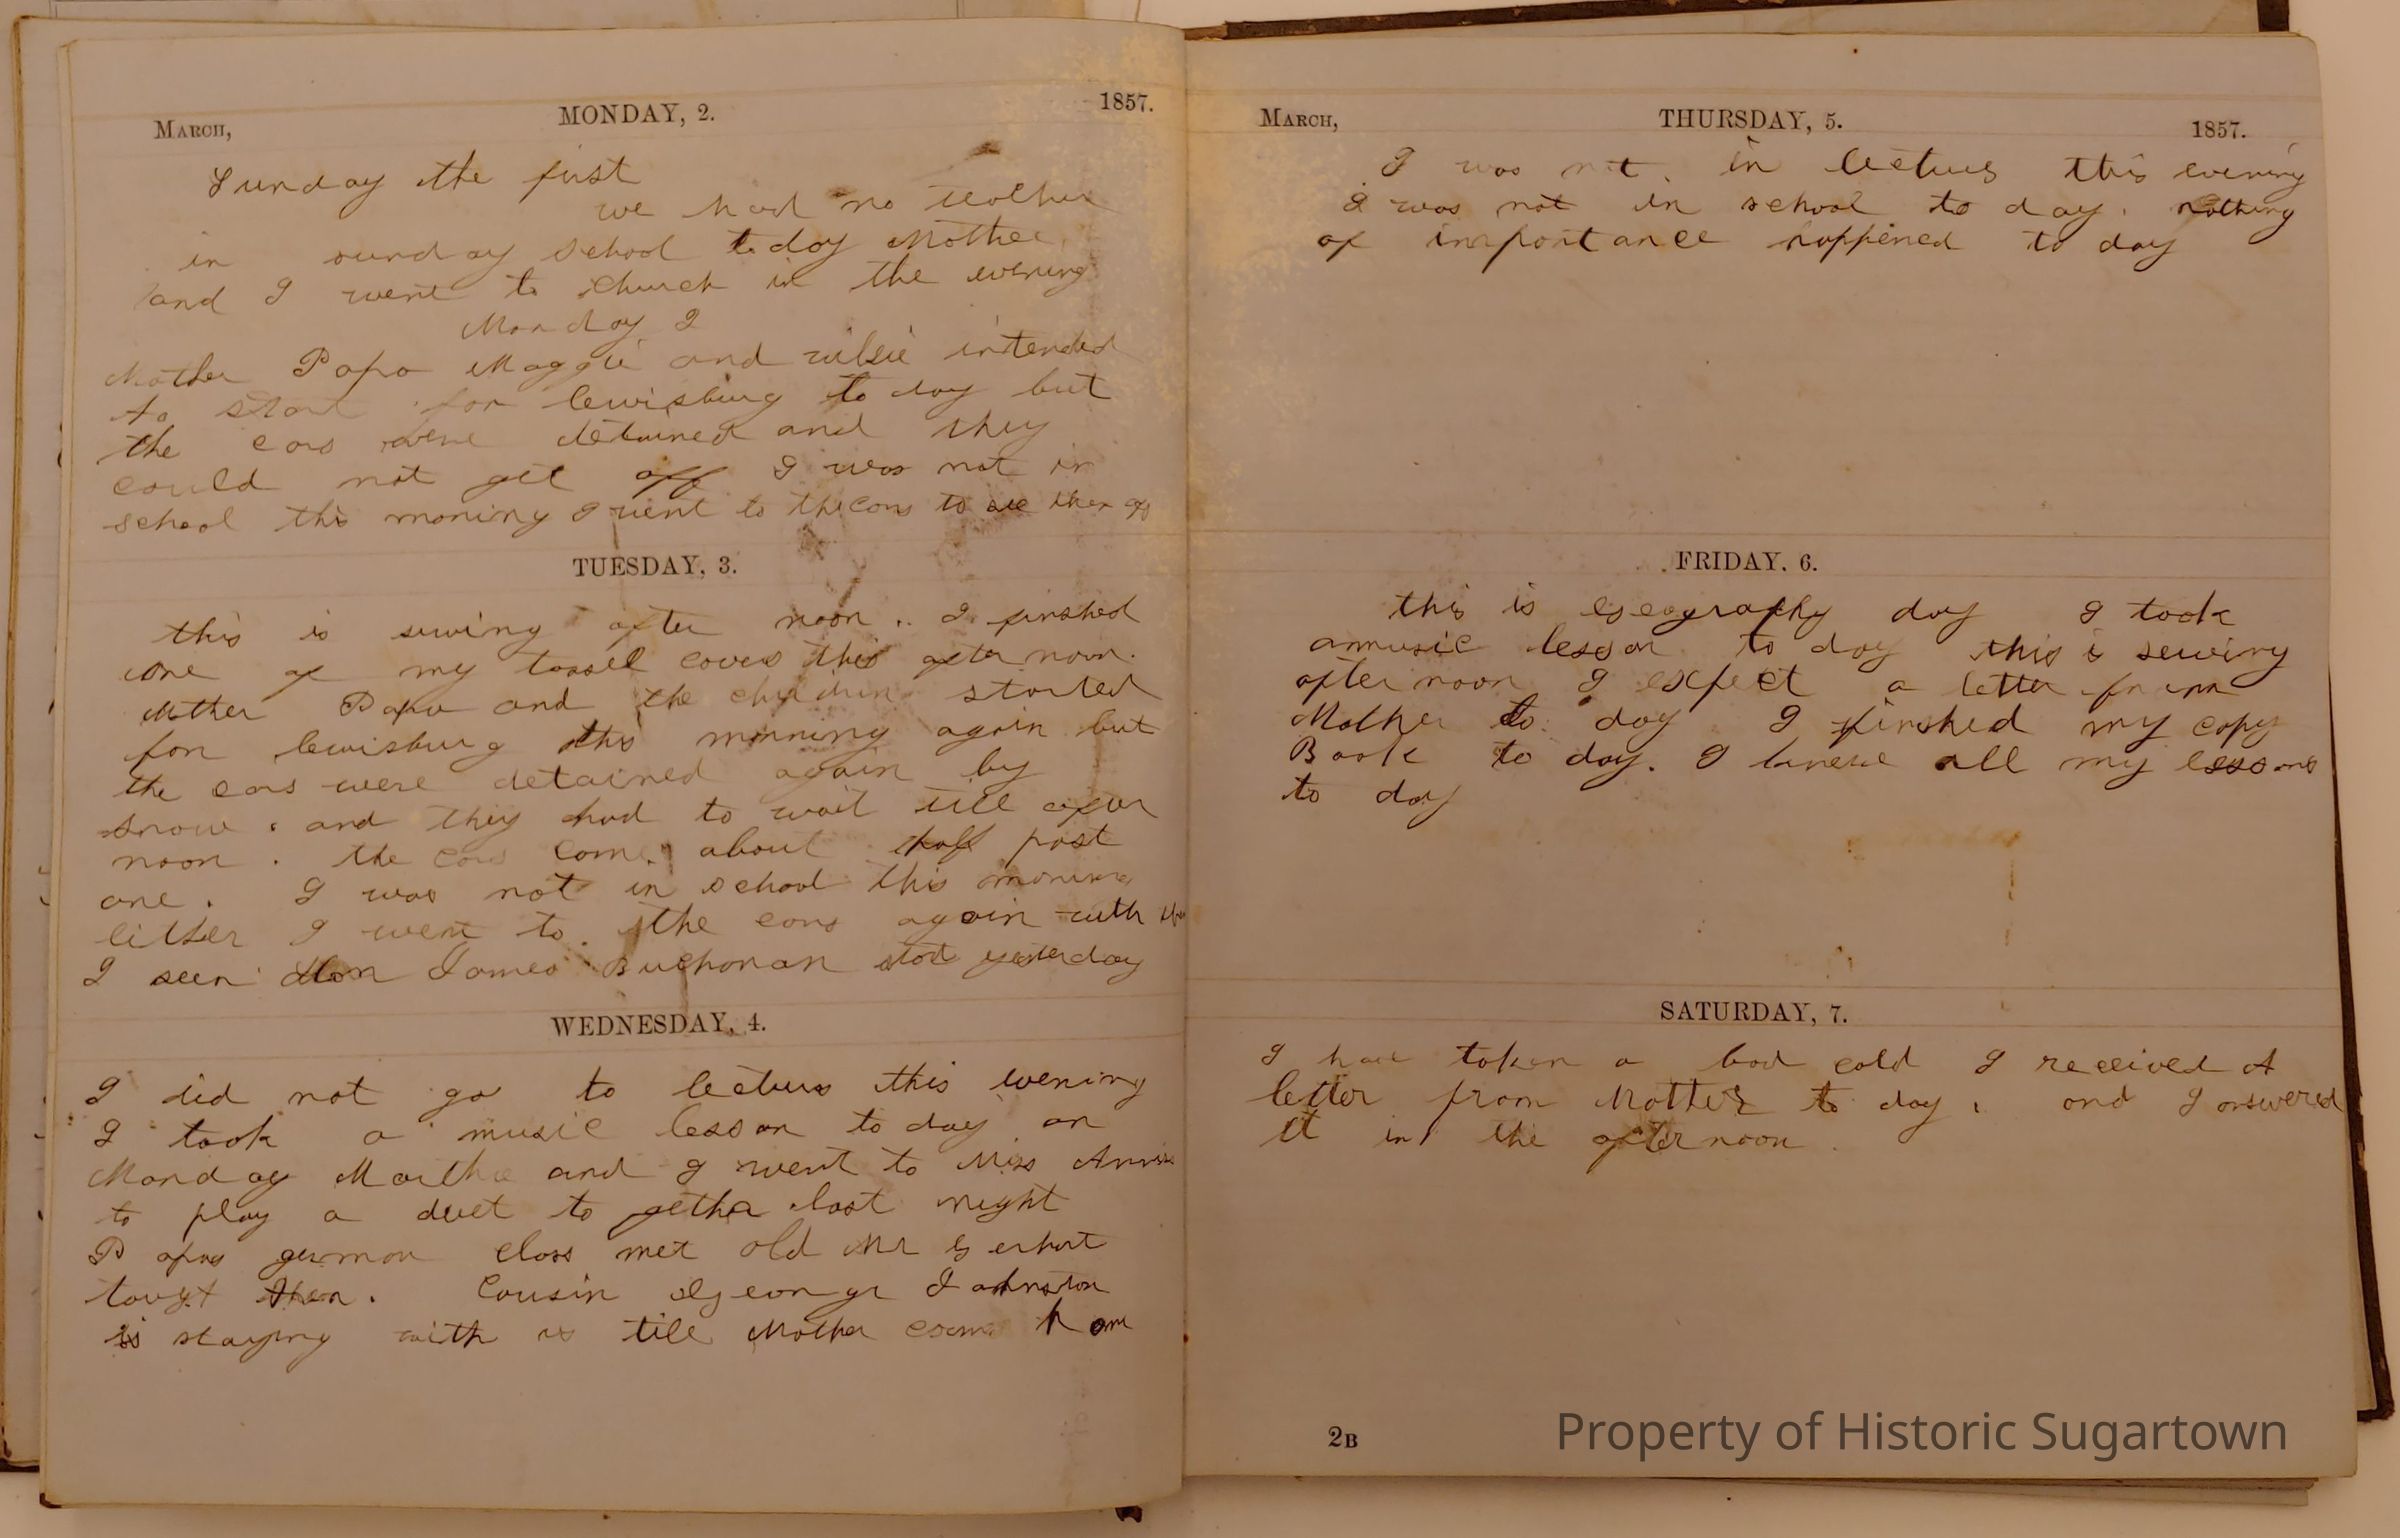 March, MONDAY, 2. 1857.
Sunday the first
we had no teacher
in sunday school to day Mother
and I went to church in the evening
Monday 2
Mother Papa Maggie and intended
to start for lewisburg to day but
the cars were detained and they
could not get off I was not in
school this moring I went to the cars to see them off
TUESDAY, 3.
this is sewing after noon .. I finshed
one of my tassel covers this after noon.
Mother Papa and the children started
for lewisburg this morning again but
the cars were detained again by
snow . and they had to wait till after
noon . the cars come about half past
one . I was not in school this morning
either I went to the cars again with the
I seen Hon James Buchanan start yesterday
WEDNESDAY, 4.
I did not go to lecture this evening
I took a music lesson to day on
Monday Martha and I went to Miss Annie
to play a duet to getha last night
Papas german class met old Mr Gerhart
tougt them . Cousin George Johnston
is staying with us till Mother comes home
March, THURSDAY, 5. 1857.
I was not in lecture this evening
I was not in school to day . nothing
of importance happened to day
FRIDAY, 6.
this is geography day I took
a music lesson to day this is sewing
after noon I expect a letter from
Mother to day I finshed my copy
Book to day . I knew all my lessons
to day
SATURDAY, 7.
I have taken a bad cold I received A
letter from Mother to day . and I answered
it in the afternoon .
2B
Property of Historic Sugartown